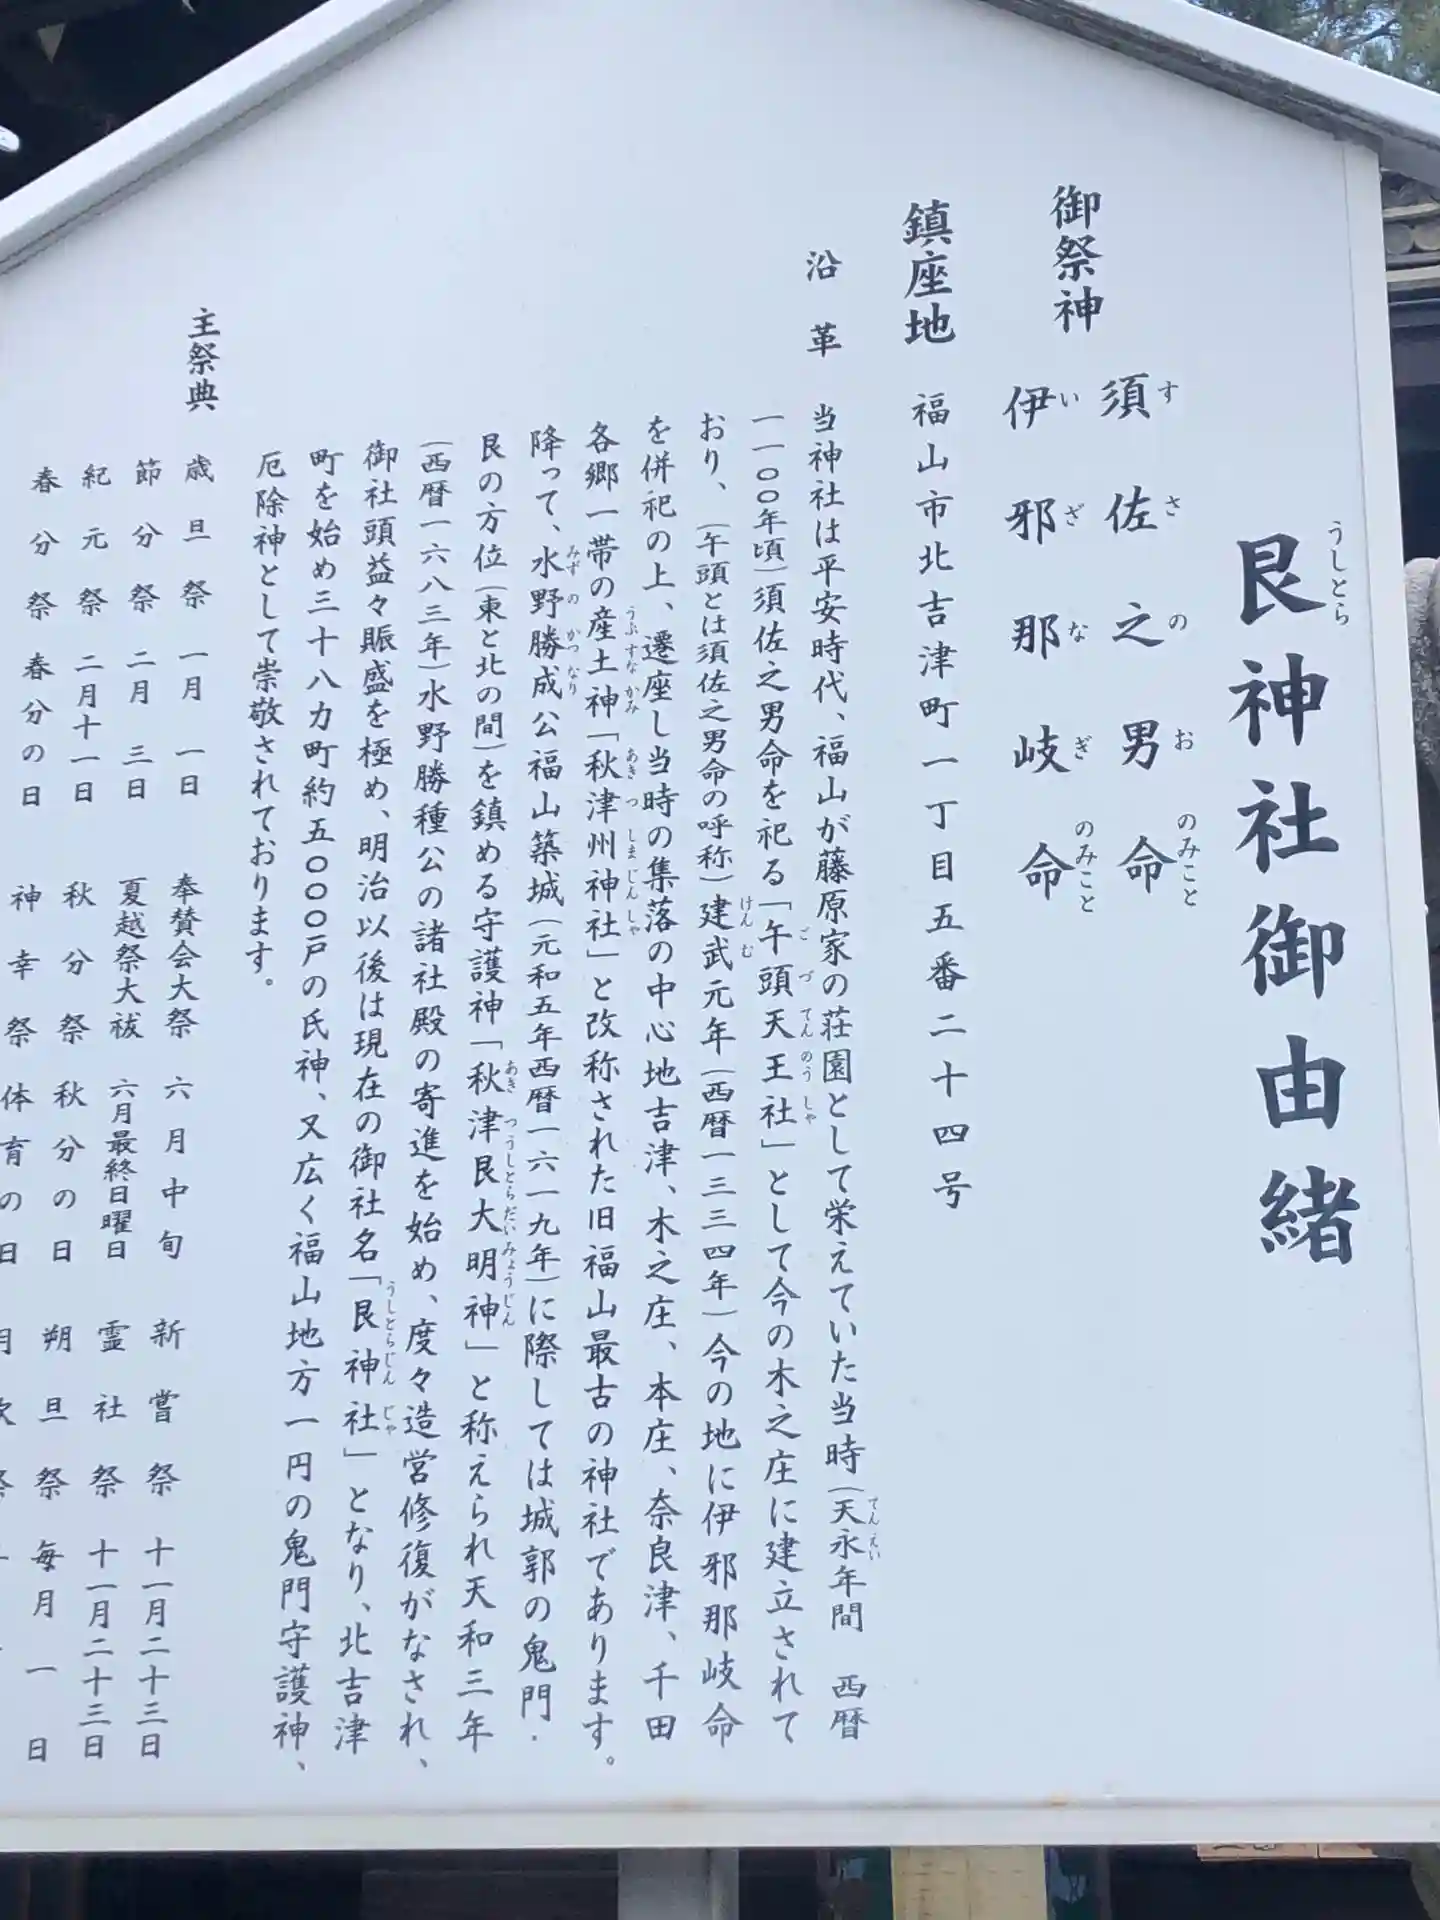 艮神社御由緒
うしとら
御祭神
須佐之男命
すさのおのみこと
伊邪那岐命
いざなぎのみこと
鎮座地 福山市北吉津町一丁目五番二十四号
沿革 当神社は平安時代、福山が藤原家の荘園として栄えていた当時(天永年間 西暦
てんえい
一一〇〇年頃)須佐之男命を祀る「午頭天王社」として今の木之庄に建立されて
ごづてんのうしゃ
おり、(午頭とは須佐之男命の呼称)建武元年(西暦一三三四年)今の地に伊邪那岐命
けんむ
を併祀の上、遷座し当時の集落の中心地吉津、木之庄、本庄、奈良津、千田
各郷一帯の産土神「秋津州神社」と改称された旧福山最古の神社であります。
うぶすなかみ あきつしまじんしゃ
降って、水野勝成公福山築城(元和五年西暦一六一九年)に際しては城郭の鬼門・
みずのかつなり
艮の方位(東と北の間)を鎮める守護神「秋津艮大明神」と称えられ天和三年
あきつうしとらだいみょうじん
(西暦一六八三年)水野勝種公の諸社殿の寄進を始め、度々造営修復がなされ、
御社頭益々賑盛を極め、明治以後は現在の御社名「艮神社」となり、北吉津
うしとらじんじゃ
町を始め三十八カ町約五〇〇〇戸の氏神、又広く福山地方一円の鬼門守護神、
厄除神として崇敬されております。
主祭典 歳旦祭 一月一日 奉賛会大祭 六月中旬 新嘗祭 十一月二十三日
節分祭 二月三日 夏越祭大祓 六月最終日曜日 霊社祭 十一月二十三日
紀元祭 二月十一日 秋分祭 秋分の日 朔旦祭 毎月一日
春分祭 春分の日 神幸祭 体育の日